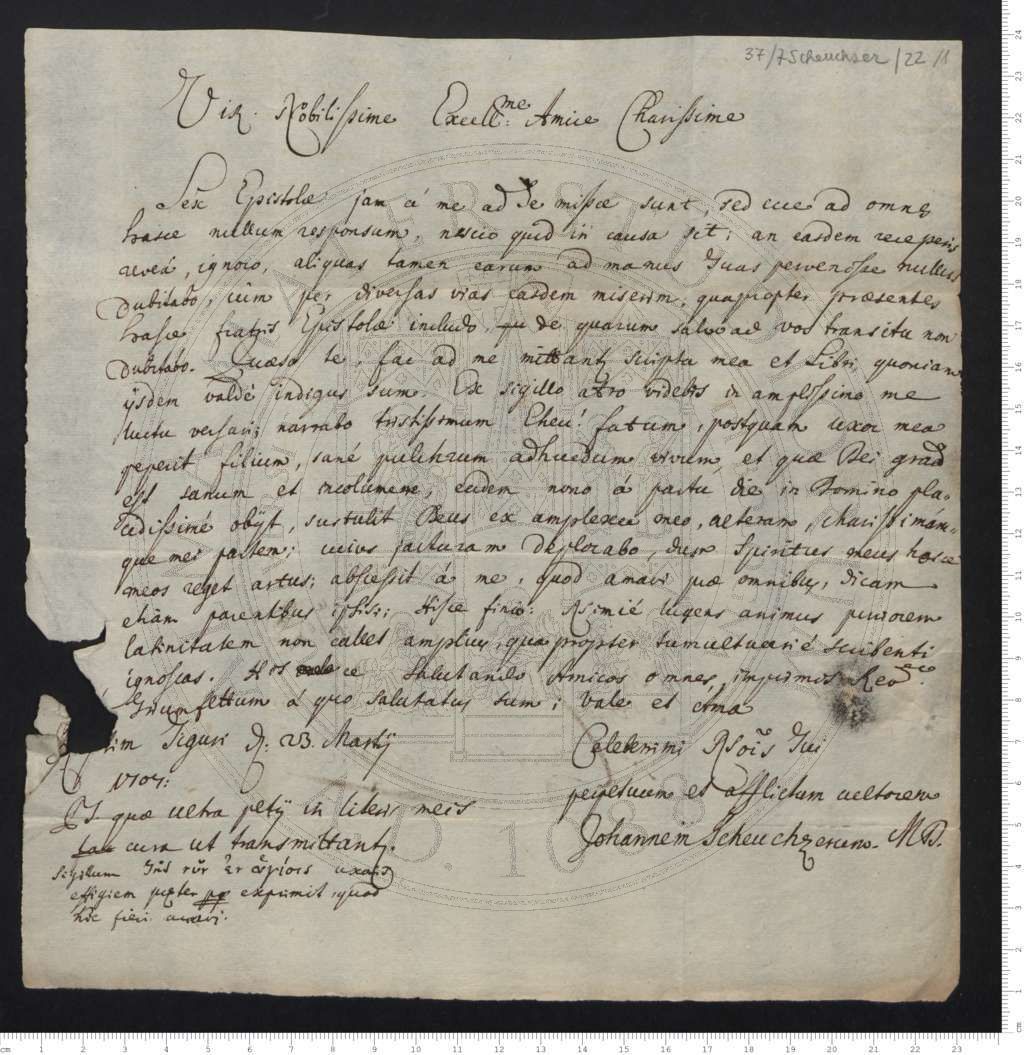 37/7 Scheuchzer/22 /1
Vir Nobilissime Excell:me Amice Charissime
Sex Epistolæ jam á me ad te missæ sunt, sed ad omnes
hasce nullum responsum, nescio quid in causa sit; an easdem receperis
ignoro, aliquas tamen earum ad manus Tuas pervenisse nullus
Dubitabo, cùm per diversas vias easdem miserim, quapropter præsentes
hasce fratris Epistolæ includo, de quarum salvo ad vos transitu non
Dubitabo. Quæso te, fac ad me mittant scripta mea et Libri, quoniam
ijsdem valdè indigus sum. Ex sigillo atro videbis in amplissimo me
luctu versari; narrabo tristissimum Eheu! fatum, postquam uxor mea
peperit filium, sané pulchrum adhucdum vivum, et quæ Dei grad
est sanum et incolumem, eadem nono á partu die in Domino pla-
cidissimé obijt, sustulit Deus ex amplexu meo, alteram, charissimám-
que mei partem; cuius jacturam deplorabo, dum Spiritus meus hosce
meos reget artus; abscessit á me, quod amavi præ omnibus, dicam
etiam parentibus ipsis; Hisce finio: lugens animus puriorem
latinitatem non callet amplius, quapropter tumultuarié scribenti
ignoscas. salutando Amicos omnes, inprimis
á quo salutatus sum; Vale et Ama
Tiguri d. 23. Martij
1707.
Celeberrimi Tui
perpetuum et afflictum cultorem
Johannem Scheuchzerum. M D.
PS. quæ ultra petij in literis meis
cura ut transmittantr.
Sigillum uxoris
effigiem exprimit quod
hic fieri curavi.